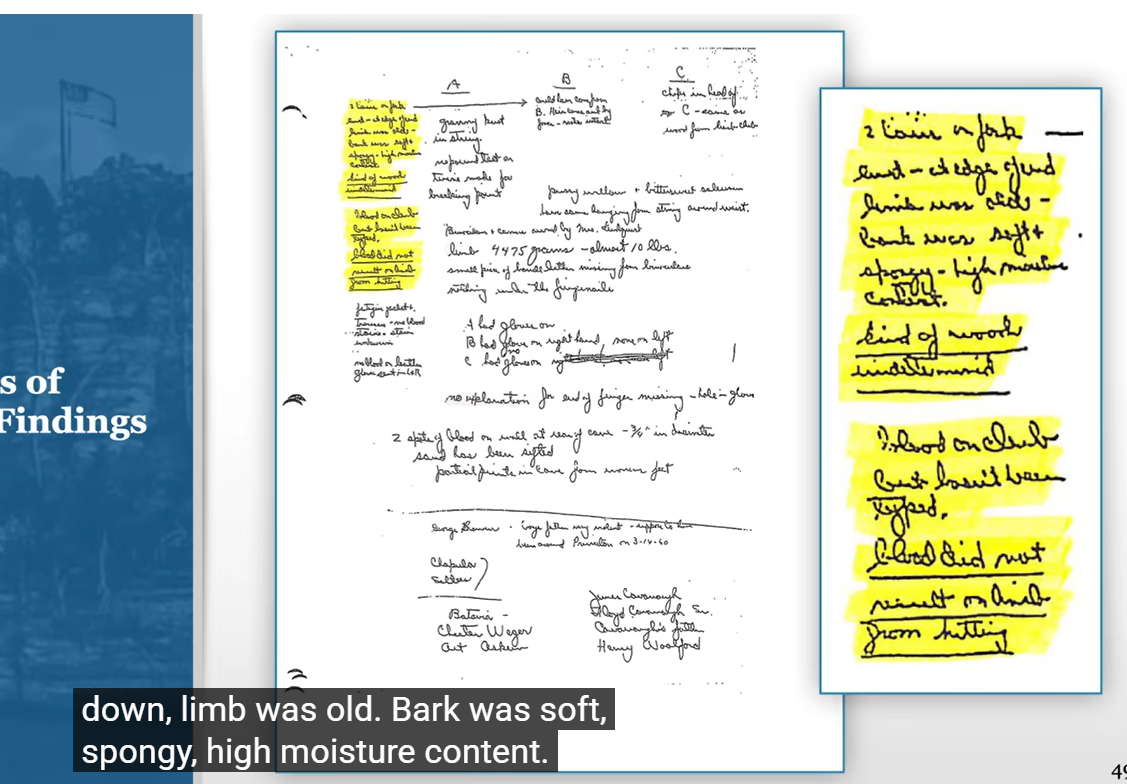 s of
Findings
A
B
C
2 hairs on fork
end - at edge of end
limb was old -
bark was soft +
spongy - high moisture
content.
kind of wood
undetermined
could have come from
B.
chips in head of
C - same as
wood from limb-club
granny knot
in string.
no pound test on
twine made for
breaking point
Blood on club
but hasn't been
typed.
blood did not
result on limb
from hitting
pussy willow + bittersweet
have same hanging from string around wrist.
Binoculars + camera owned by Mrs. Lindquist
limb 4475 grams - almost 10 lbs.
small piece of missing from binoculars
nothing under the fingernails
no blood
stains - stain
unknown
no blood on leather
glove sent in
A had gloves on
B had glove on right hand, none on left
C had no gloves on
no explanation for end of finger missing - hole - glove
2 spots of blood on wall at rear of cave - 3/4" in diameter
sand has been sifted
partial prints in cave from women feet
George
been around Princeton on 3-14-60
Batavia -
Chester Weger
James Cavanaugh
Floyd Cavanaugh Sr.
Cavanaugh's father
Henry Woolford
2 hairs on fork
end - at edge of end
limb was old -
bark was soft +
spongy - high moisture
content.
kind of wood
undetermined
Blood on club
but hasn't been
typed.
blood did not
result on limb
from hitting
down, limb was old. Bark was soft,
spongy, high moisture content.